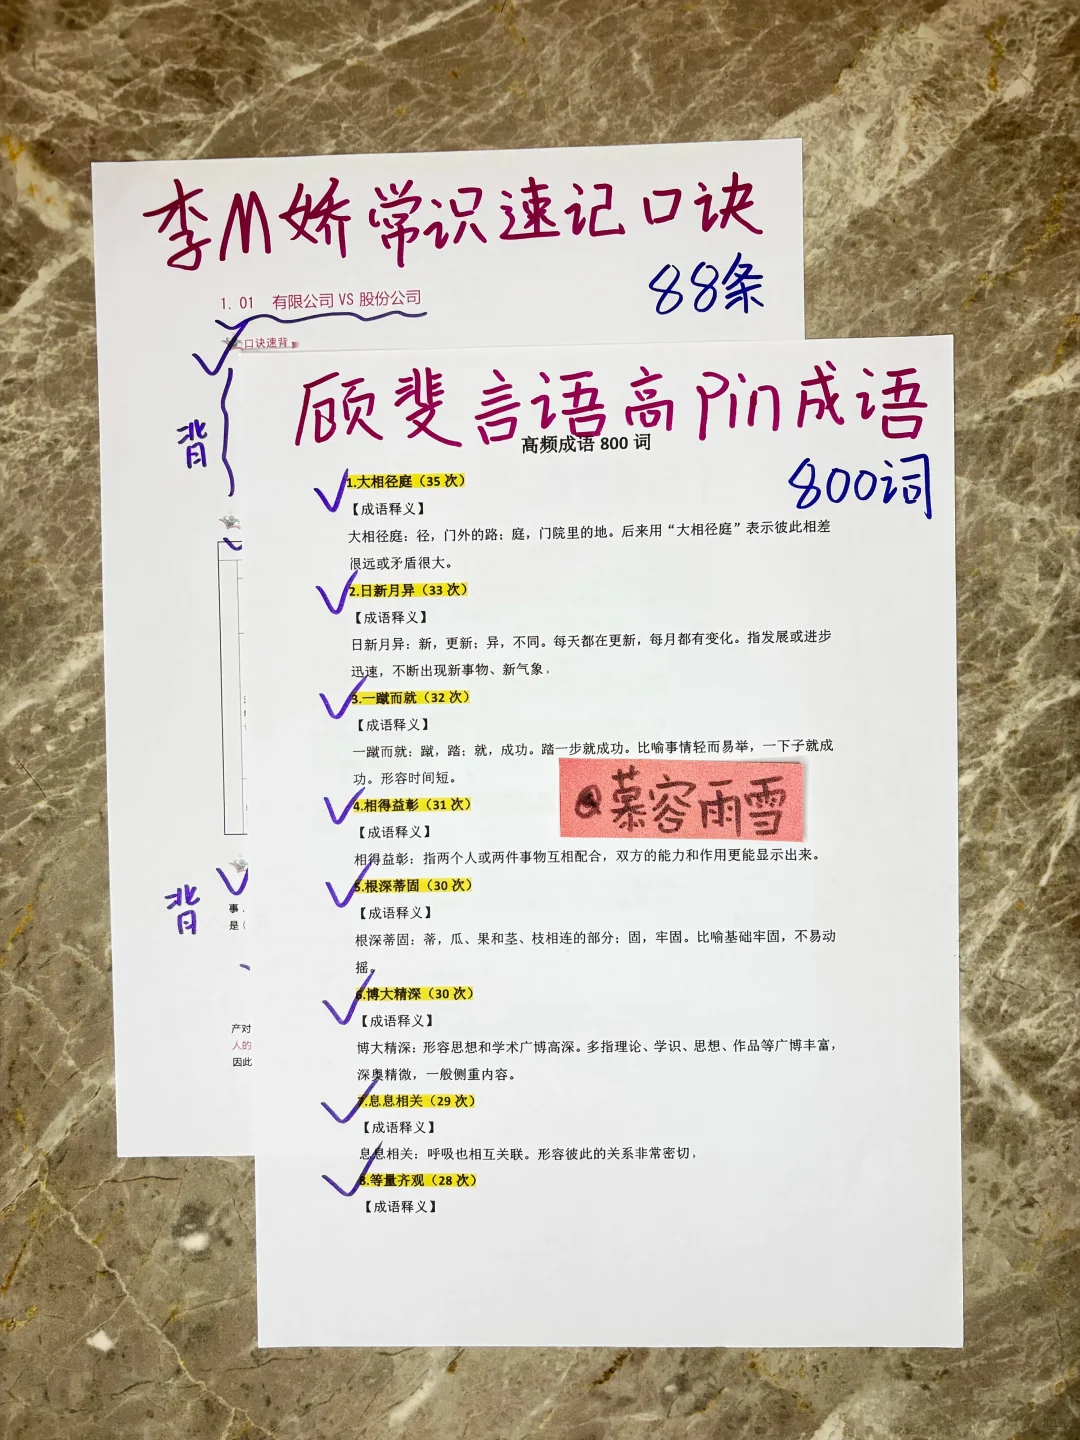 李M娇常识速记口诀
88条
1. 01 有限公司 VS 股份公司
口诀速背
背
背
事
是（
产对
人的
因此
顾斐言语高Pin成语
高频成语 800 词
800词
1.大相径庭（35 次）
【成语释义】
大相径庭：径，门外的路；庭，门院里的地。后来用“大相径庭”表示彼此相差
很远或矛盾很大。
2.日新月异（33 次）
【成语释义】
日新月异：新，更新；异，不同。每天都在更新，每月都有变化。指发展或进步
迅速，不断出现新事物、新气象。
3.一蹴而就（32 次）
【成语释义】
一蹴而就：蹴，踏；就，成功。踏一步就成功。比喻事情轻而易举，一下子就成
功。形容时间短。
@慕容雨雪
4.相得益彰（31 次）
【成语释义】
相得益彰：指两个人或两件事物互相配合，双方的能力和作用更能显示出来。
5.根深蒂固（30 次）
【成语释义】
根深蒂固：蒂，瓜、果和茎、枝相连的部分；固，牢固。比喻基础牢固，不易动
摇。
6.博大精深（30 次）
【成语释义】
博大精深：形容思想和学术广博高深。多指理论、学识、思想、作品等广博丰富，
深奥精微，一般侧重内容。
7.息息相关（29 次）
【成语释义】
息息相关：呼吸也相互关联。形容彼此的关系非常密切。
8.等量齐观（28 次）
【成语释义】